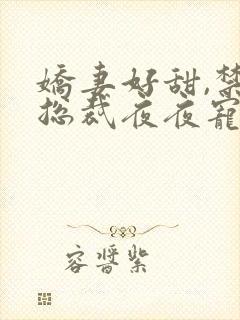 嬌妻好甜,禁
總裁夜夜寵
容醬紫